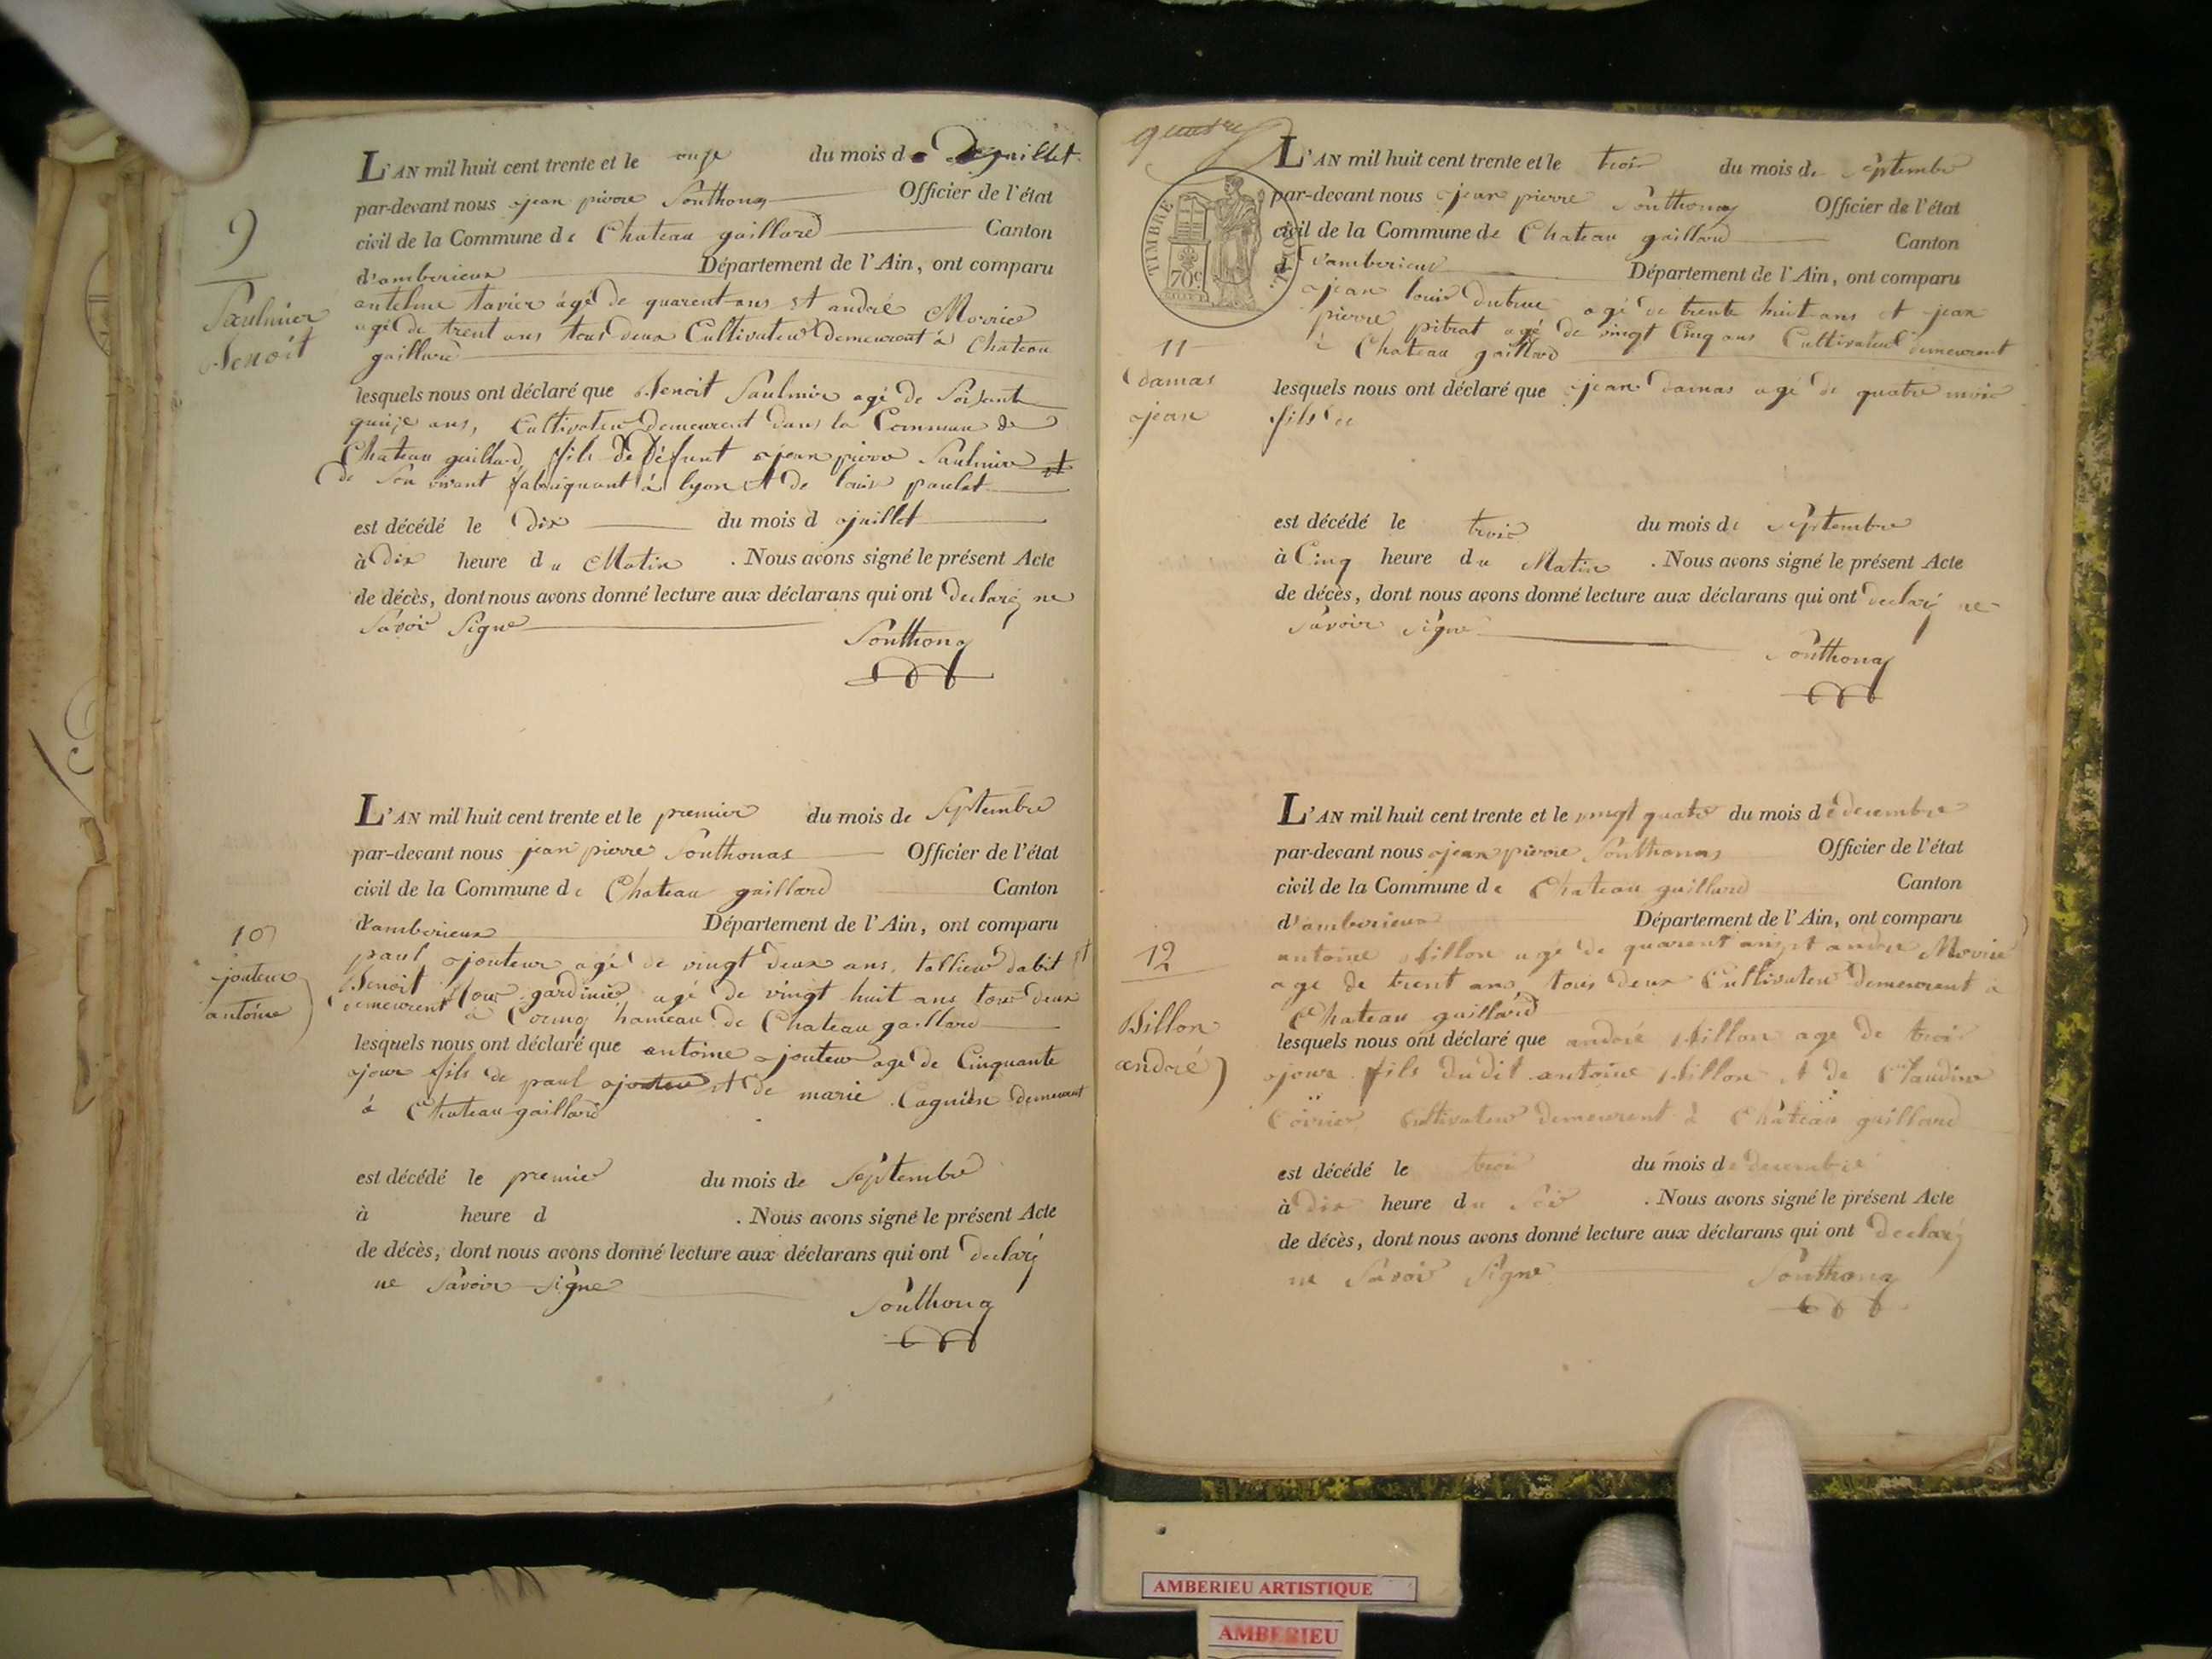 9
Paulmier
Benoit
L'AN mil huit cent trente et le onze du mois de juillet
par-devant nous jean pierre Ponthona Officier de l'état
civil de la Commune de Chateau gaillard Canton
d'amberieux Département de l'Ain, ont comparu
antelme tavier agé de quarent ans et andré Morrier
agé de trent ans tous deux Cultivateur demeurent à Chateau
gaillard
lesquels nous ont déclaré que Benoit Paulmier agé de Soixante
quinze ans, Cultivateur demeurent dans la Commune de
Chateau gaillard, fils de Défunt jean pierre Paulmier et
de Son vivant fabriquant à lyon et de louise paulet
est décédé le dix du mois d juillet
à dix heure du Matin . Nous avons signé le présent Acte
de décès, dont nous avons donné lecture aux déclarans qui ont declaré ne
Savoir Signe
Ponthona
10
jouteur
antoine
L'AN mil huit cent trente et le premier du mois de Septembre
par-devant nous jean pierre Ponthonas Officier de l'état
civil de la Commune de Chateau gaillard Canton
d'amberieux Département de l'Ain, ont comparu
paul jouteur agé de vingt deux ans, tallieur dabit et
Benoit gardinier agé de vingt huit ans tous deux
demeurent à Cormoz hameau de Chateau gaillard
lesquels nous ont déclaré que antoine jouteur age de Cinquante
jour fils de paul jouteur et de marie Cagniere demeurant
à Chateau gaillard
est décédé le premier du mois de Septembre
à heure d . Nous avons signé le présent Acte
de décès, dont nous avons donné lecture aux déclarans qui ont declaré
ne Savoir Signe
Ponthona
quatre
TIMBRE
70c
11
damas
jean
L'AN mil huit cent trente et le trois du mois de Septembre
par-devant nous jean pierre Ponthonas Officier de l'état
civil de la Commune de Chateau gaillard Canton
d'amberieux Département de l'Ain, ont comparu
jean louis dutruc agé de trente huit ans et jean
pierre pitrat agé de vingt Cinq ans Cultivateur demeurent
à Chateau gaillard
lesquels nous ont déclaré que jean damas agé de quatre mois
fils de
est décédé le trois du mois de Septembre
à Cinq heure du Matin . Nous avons signé le présent Acte
de décès, dont nous avons donné lecture aux déclarans qui ont declaré ne
Savoir Signe
Ponthona
12
Billon
andré
L'AN mil huit cent trente et le vingt quatre du mois de decembre
par-devant nous jean pierre Ponthonas Officier de l'état
civil de la Commune de Chateau gaillard Canton
d'amberieux Département de l'Ain, ont comparu
antoine Billon agé de quarent ans et andré Morrier
age de trent ans tous deux Cultivateur demeurent à
Chateau gaillard
lesquels nous ont déclaré que andré Billon age de trois
jours fils dudit antoine Billon et de Claudine
Cultivateur demeurent à Chateau gaillard
est décédé le trois du mois de decembre
à dix heure du Soir . Nous avons signé le présent Acte
de décès, dont nous avons donné lecture aux déclarans qui ont declaré
ne Savoir Signe
Ponthona
AMBERIEU ARTISTIQUE
AMBERIEU